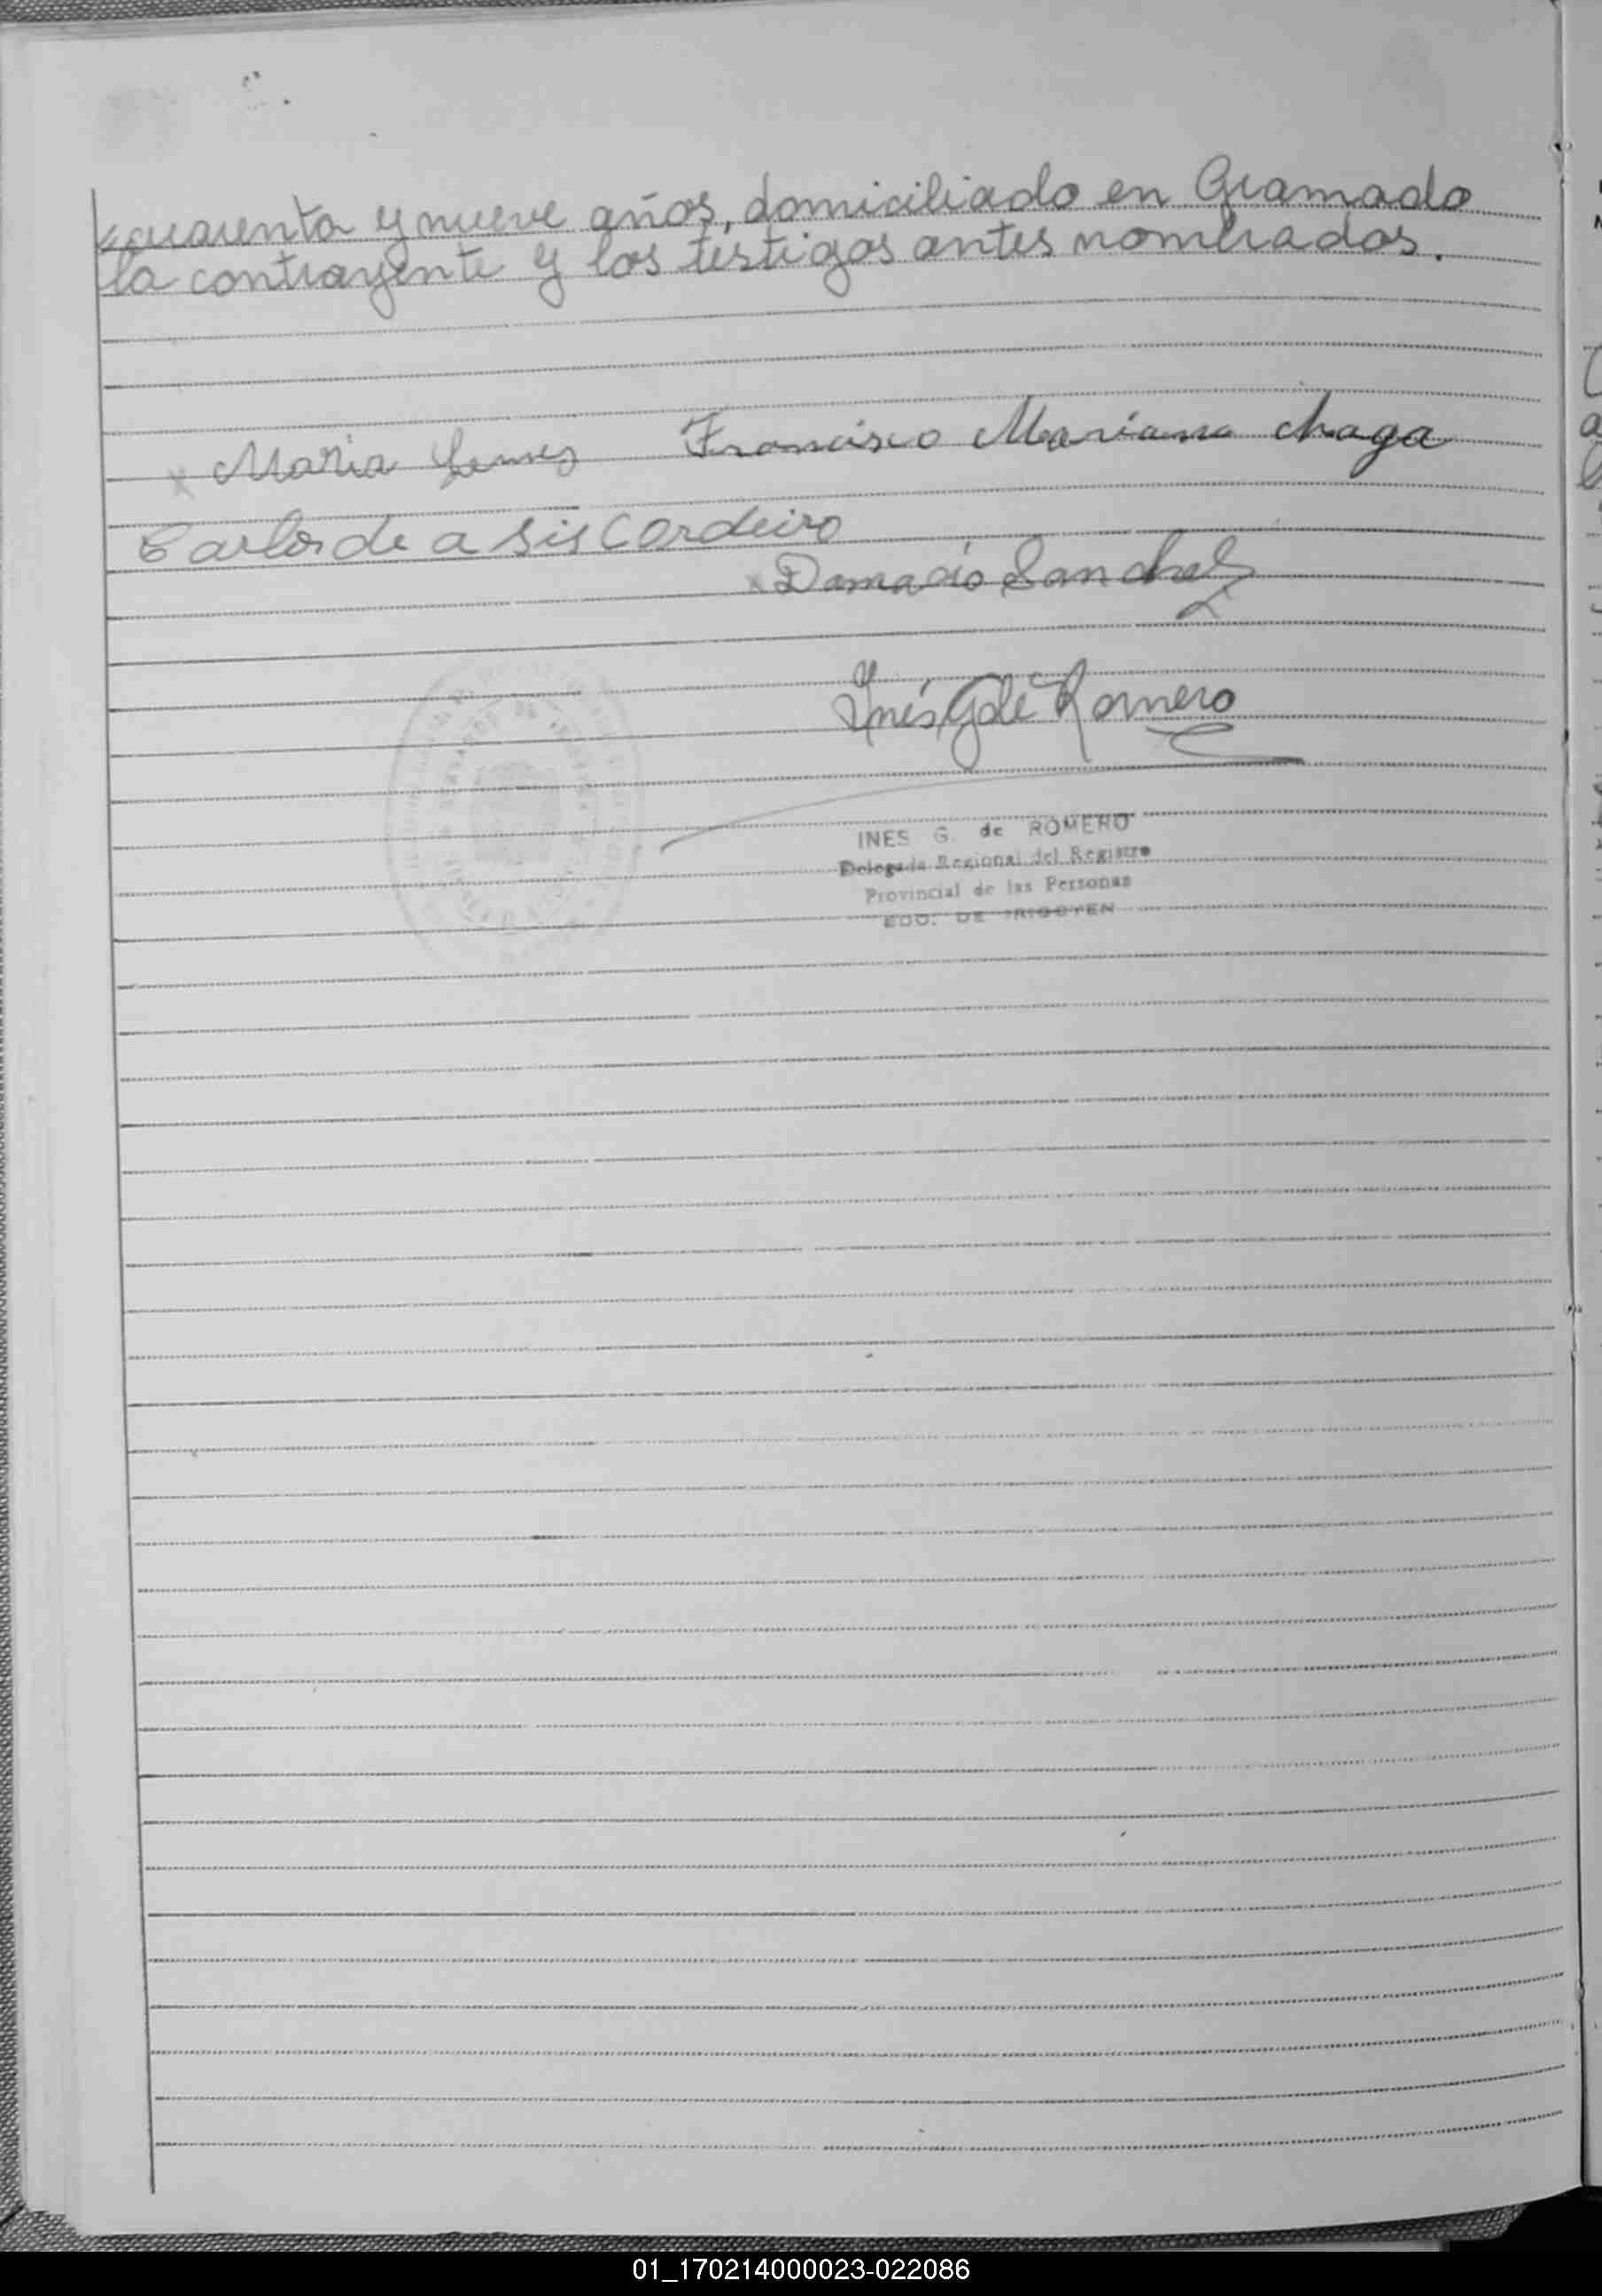 cuarenta y nueve años, domiciliado en Gramado
la contrayente y los testigos antes nombrados.
x Maria Francisco Mariano chaga
Carlos de a sis Cordeiro
x Damacio Sanchez
Inés G de Romero
INES G. de ROMERO
Delegada Regional del Registro
Provincial de las Personas
BDO. DE IRIGOYEN
01_170214000023-022086